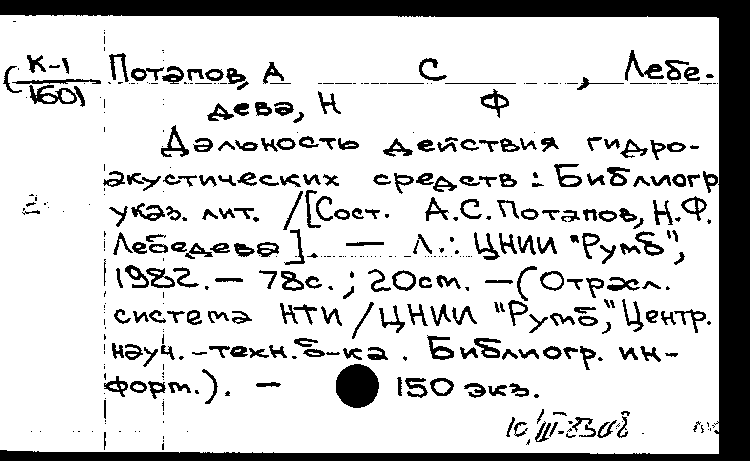 К-1 Потапов, А С , Лебе-
1601 дева, Н Ф
Дальность действия гидро-
акустических средств : Библиогр
указ. лит. / [Сост. А.С. Потапов, Н.Ф.
Лебедева]. — Л.: ЦНИИ "Румб",
1982. - 78с. ; 20см. - (Отрасл.
система НТИ / ЦНИИ "Румб", Центр.
науч.-техн. б-ка . Библиогр. ин-
форм.). - 150 экз.